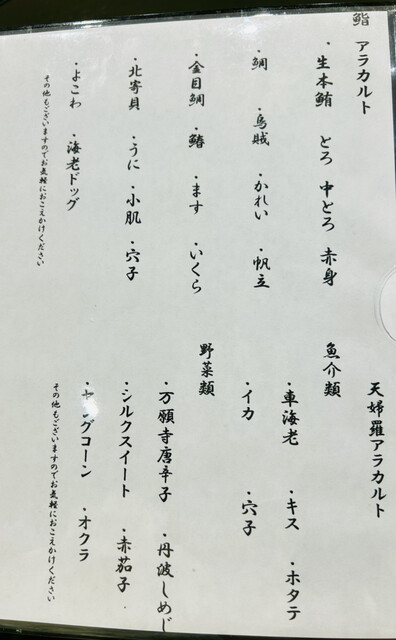 鮨 アラカルト
・生本鮪 とろ 中とろ 赤身
・鯛 ・烏賊 ・かれい ・帆立
・金目鯛 ・鰆 ・ます ・いくら
・北寄貝 ・うに ・小肌 ・穴子
・よこわ ・海老ドッグ
その他もございますのでお気軽におこえかけください
天婦羅アラカルト
魚介類
・車海老 ・キス ・ホタテ
・イカ ・穴子
野菜類
・万願寺唐辛子 ・丹波しめじ
・シルクスイート ・赤茄子
・ヤングコーン ・オクラ
その他もございますのでお気軽におこえかけください